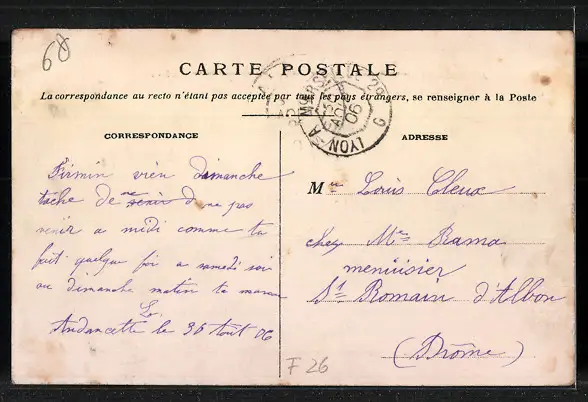 68
CARTE POSTALE
La correspondance au recto n'étant pas acceptée par tous les pays étrangers, se renseigner à la Poste
CORRESPONDANCE
Firmin vien dimanche
tâche de ne pas
venir a midi comme ta
fait quelque foi a samedi soi
ou dimanche matin ta maman
Andancette le 30 Août 06
ADRESSE
Mr Louis Cleux
chez Mr Rama
menuisier
St Romain d'Albon
(Drôme)
LYON
06
F 26